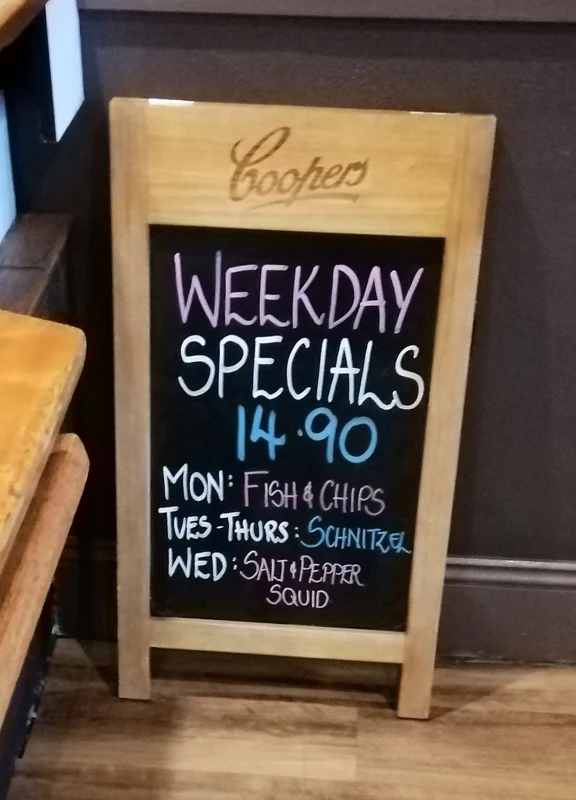 Coopers
WEEKDAY
SPECIALS
14.90
MON: FISH & CHIPS
TUES-THURS: SCHNITZEL
WED: SALT & PEPPER
SQUID